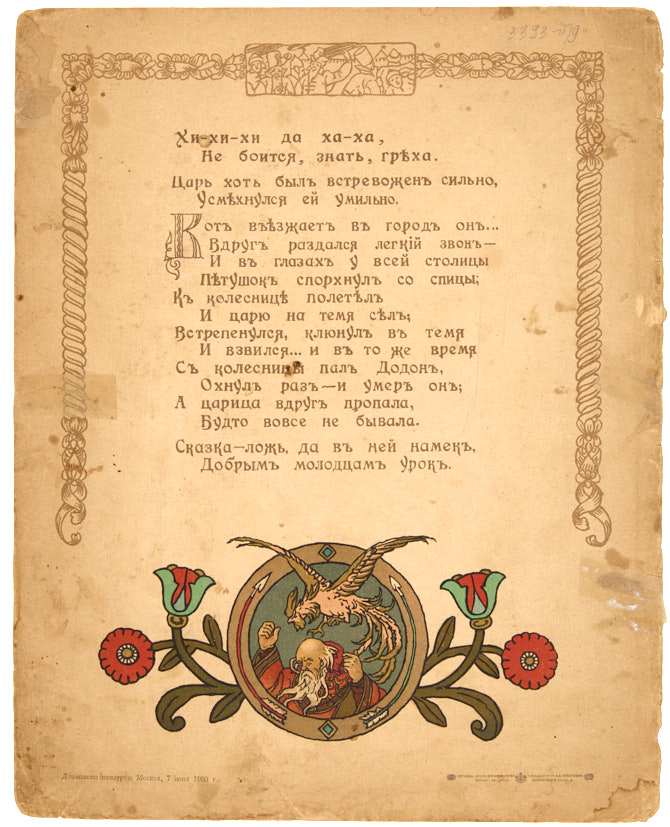 3393-П9
Хи-хи-хи да ха-ха,
Не боится, знать, грѣха.
Царь хоть былъ встревоженъ сильно,
Усмѣхнулся ей умильно.
Вотъ въѣзжаетъ въ городъ онъ...
Вдругъ раздался легкій звонъ—
И въ глазахъ у всей столицы
Пѣтушокъ спорхнулъ со спицы;
Къ колесницѣ полетѣлъ
И царю на темя сѣлъ;
Встрепенулся, клюнулъ въ темя
И взвился... и въ то же время
Съ колесницы палъ Додонъ,
Охнулъ разъ—и умеръ онъ;
А царица вдругъ пропала,
Будто вовсе не бывала.
Сказка—ложь, да въ ней намекъ,
Добрымъ молодцамъ урокъ.
Дозволено цензурою Москва, 7 іюня 1903 г.